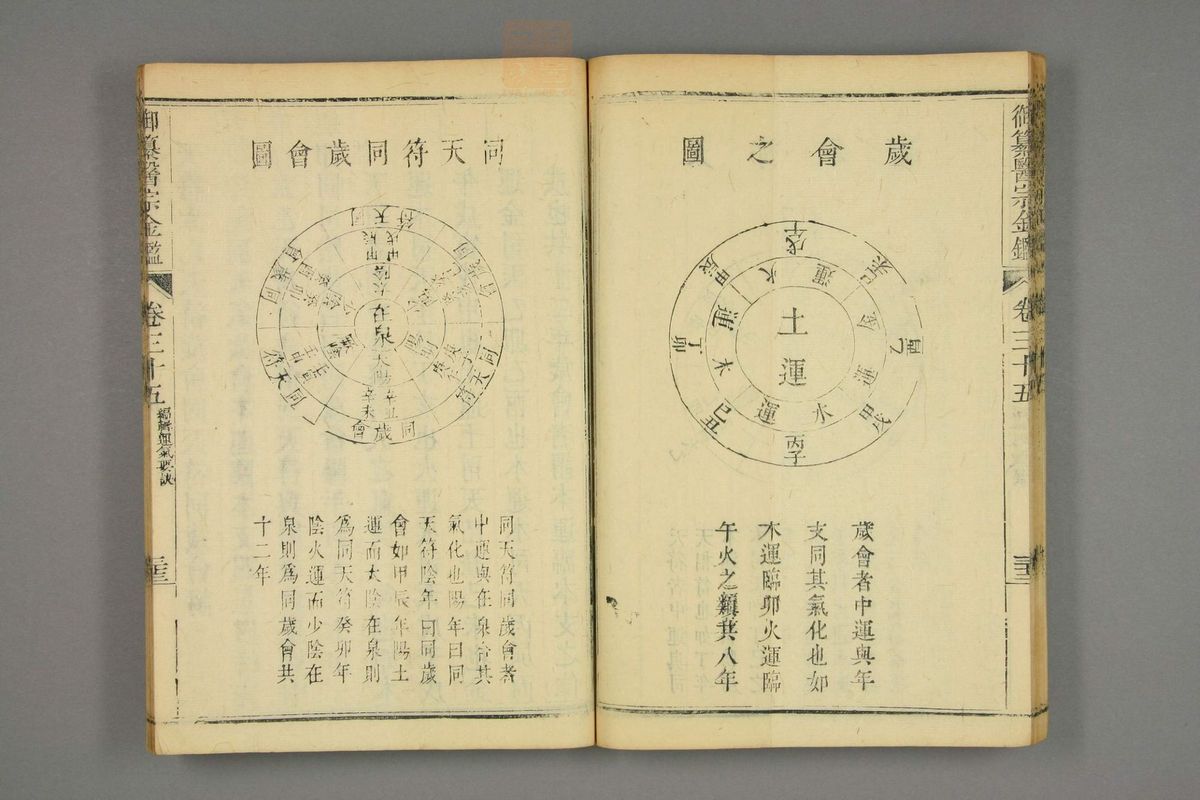 御纂醫宗金鑑
卷三十五
歲會之圖
土運
火運
金運
水運
木運
戊午
己未
乙酉
甲戌
丙子
己丑
丁卯
甲辰
歲會者中運與年
支同其氣化也如
木運臨卯火運臨
午火之類共八年
同天符同歲會圖
在泉
同天符
甲辰
甲戌
同歲會
同天符
同歲會
辛丑
辛未
同天符
同歲會
同天符同歲會者
中運與在泉合其
氣化也陽年曰同
天符陰年曰同歲
會如甲辰年陽土
運而太陰在泉則
爲同天符癸卯年
陰火運而少陰在
泉則爲同歲會共
十二年
御纂醫宗金鑑
卷三十五
編輯運氣要訣